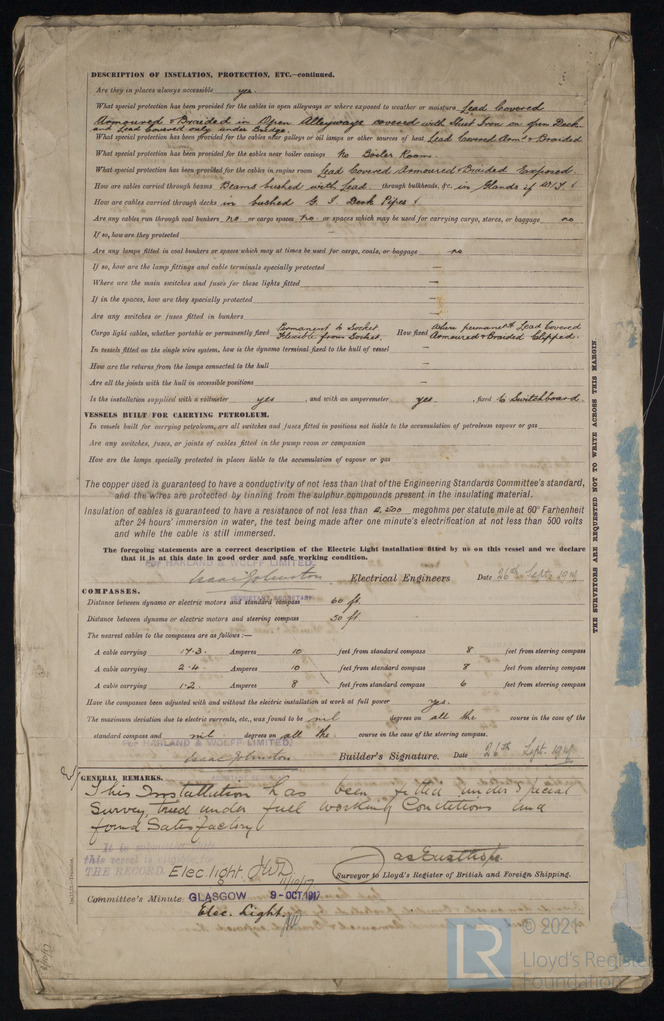 DESCRIPTION OF INSULATION, PROTECTION, ETC.—continued.
Are they in places always accessible yes.
What special protection has been provided for the cables in open alleyways or where exposed to weather or moisture Lead Covered
Armoured & Braided in Open Alleyways covered with Sheet Iron on open Deck
and Lead Covered only under Bridge.
What special protection has been provided for the cables near galleys or oil lamps or other sources of heat Lead Covered Armd & Braided
What special protection has been provided for the cables near boiler casings No Boiler Room.
What special protection has been provided for the cables in engine room Lead Covered Armoured & Braided Exposed.
How are cables carried through beams Beams bushed with Lead through bulkheads, &c. in Glands if W.T.
How are cables carried through decks in bushed G. I. Deck Pipes
Are any cables run through coal bunkers no. or cargo spaces no. or spaces which may be used for carrying cargo, stores, or baggage no
If so, how are they protected
Are any lamps fitted in coal bunkers or spaces which may at times be used for cargo, coals, or baggage no
If so, how are the lamp fittings and cable terminals specially protected —
Where are the main switches and fuses for these lights fitted —
If in the spaces, how are they specially protected —
Are any switches or fuses fitted in bunkers —
Cargo light cables, whether portable or permanently fixed Permanent to Socket Flexible from Socket. How fixed When permanent Lead Covered Armoured & Braided Clipped.
In vessels fitted on the single wire system, how is the dynamo terminal fixed to the hull of vessel —
How are the returns from the lamps connected to the hull —
Are all the joints with the hull in accessible positions —
Is the installation supplied with a voltmeter yes , and with an amperemeter yes , fixed Switchboard
VESSELS BUILT FOR CARRYING PETROLEUM.
In vessels built for carrying petroleum, are all switches and fuses fitted in positions not liable to the accumulation of petroleum vapour or gas
Are any switches, fuses, or joints of cables fitted in the pump room or companion
How are the lamps specially protected in places liable to the accumulation of vapour or gas
The copper used is guaranteed to have a conductivity of not less than that of the Engineering Standards Committee's standard,
and the wires are protected by tinning from the sulphur compounds present in the insulating material.
Insulation of cables is guaranteed to have a resistance of not less than megohms per statute mile at 60° Farhenheit
after 24 hours' immersion in water, the test being made after one minute's electrification at not less than 500 volts
and while the cable is still immersed.
The foregoing statements are a correct description of the Electric Light installation fitted by us on this vessel and we declare
that it is at this date in good order and safe working condition.
FOR HARLAND & WOLFF LIMITED.
Isaac Johnston Electrical Engineers Date 26th Sept. 1917
COMPASSES.
Distance between dynamo or electric motors and standard compass 60 ft.
Distance between dynamo or electric motors and steering compass 50 ft.
The nearest cables to the compasses are as follows:—
A cable carrying 17.3. Amperes 10 feet from standard compass 8 feet from steering compass
A cable carrying 2.4 Amperes 10 feet from standard compass 8 feet from steering compass
A cable carrying 1.2. Amperes 8 feet from standard compass 6 feet from steering compass
Have the compasses been adjusted with and without the electric installation at work at full power yes.
The maximum deviation due to electric currents, etc., was found to be nil degrees on all the course in the case of the
standard compass and nil degrees on all the course in the case of the steering compass.
FOR HARLAND & WOLFF LIMITED.
Isaac Johnston Builder's Signature. Date 26th Sept. 1917
GENERAL REMARKS.
This Installation has been fitted under Special
Survey, tried under full working Conditions and
found Satisfactory
It is submitted that
this vessel is eligible for
THE RECORD. Elec. light. JWD 11/10/17
Surveyor to Lloyd's Register of British and Foreign Shipping.
Committee's Minute GLASGOW 9-OCT.1917
Elec. Light.
THE SURVEYORS ARE REQUESTED NOT TO WRITE ACROSS THIS MARGIN.
LR
© 2021
Lloyd's Register
Foundation